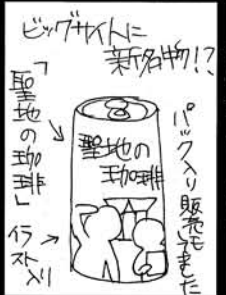 ビッグサイトに
新名物!?
「聖地の珈琲」
聖地の
珈琲
イラスト入り
パック入り販売もしてました